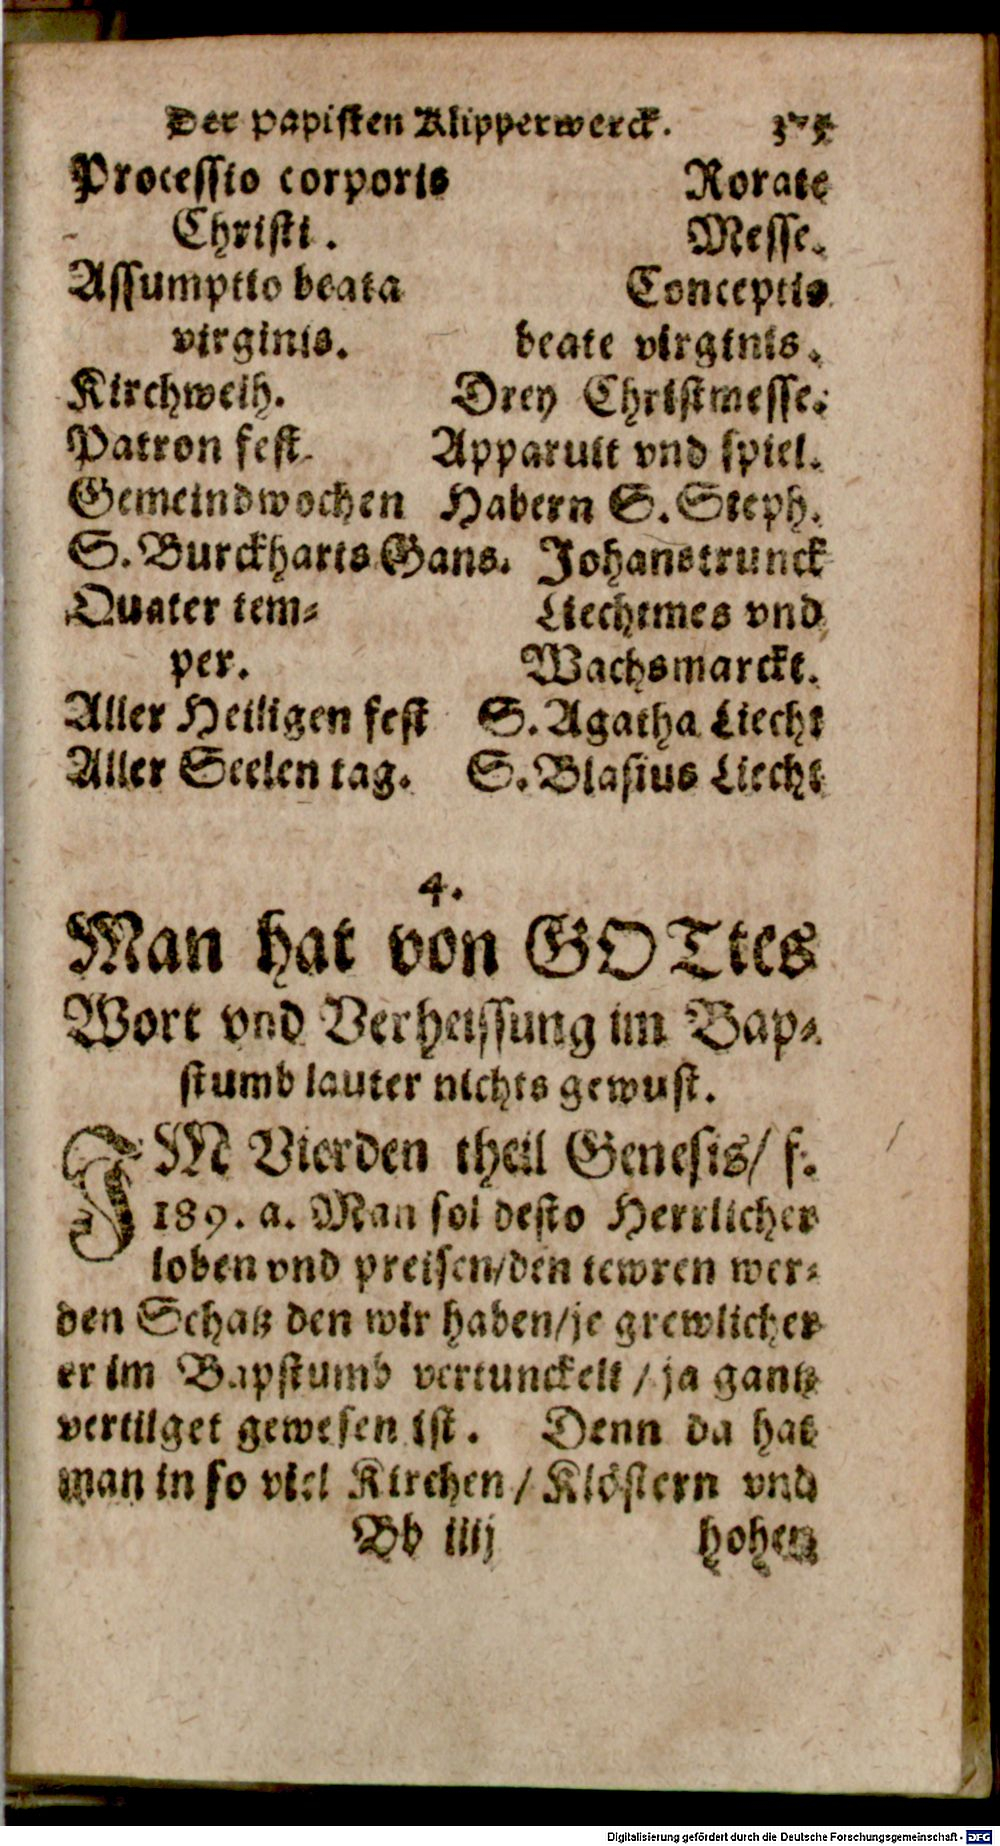 Der Papisten Klipperwerck.
Processio corporis Rorate
Christi. Messe.
Assumptio beata Conceptio
virginis. beate virginis.
Kirchweih. Drey Christmesse.
Patron fest. Apparuit vnd spiel.
Gemeindwochen Habern S. Steph.
S. Burckharts Gans. Johanstrunck
Quater tem- Liechtmes vnd
per. Wachsmarckt.
Aller Heiligen fest S. Agatha Liecht
Aller Seelen tag. S. Blasius Liecht
4.
Man hat von GOTtes
Wort vnd Verheissung im Bap-
stumb lauter nichts gewust.
IM Vierden theil Genesis/ f.
189. a. Man sol desto Herrlicher
loben vnd preisen/den tewren wer-
den Schatz den wir haben/je grewlicher
er im Bapstumb vertunckelt / ja gantz
vertilget gewesen ist. Denn da hat
man in so viel Kirchen / Klöstern vnd
Bb iiij hohen
Digitalisierung gefördert durch die Deutsche Forschungsgemeinschaft - DFG